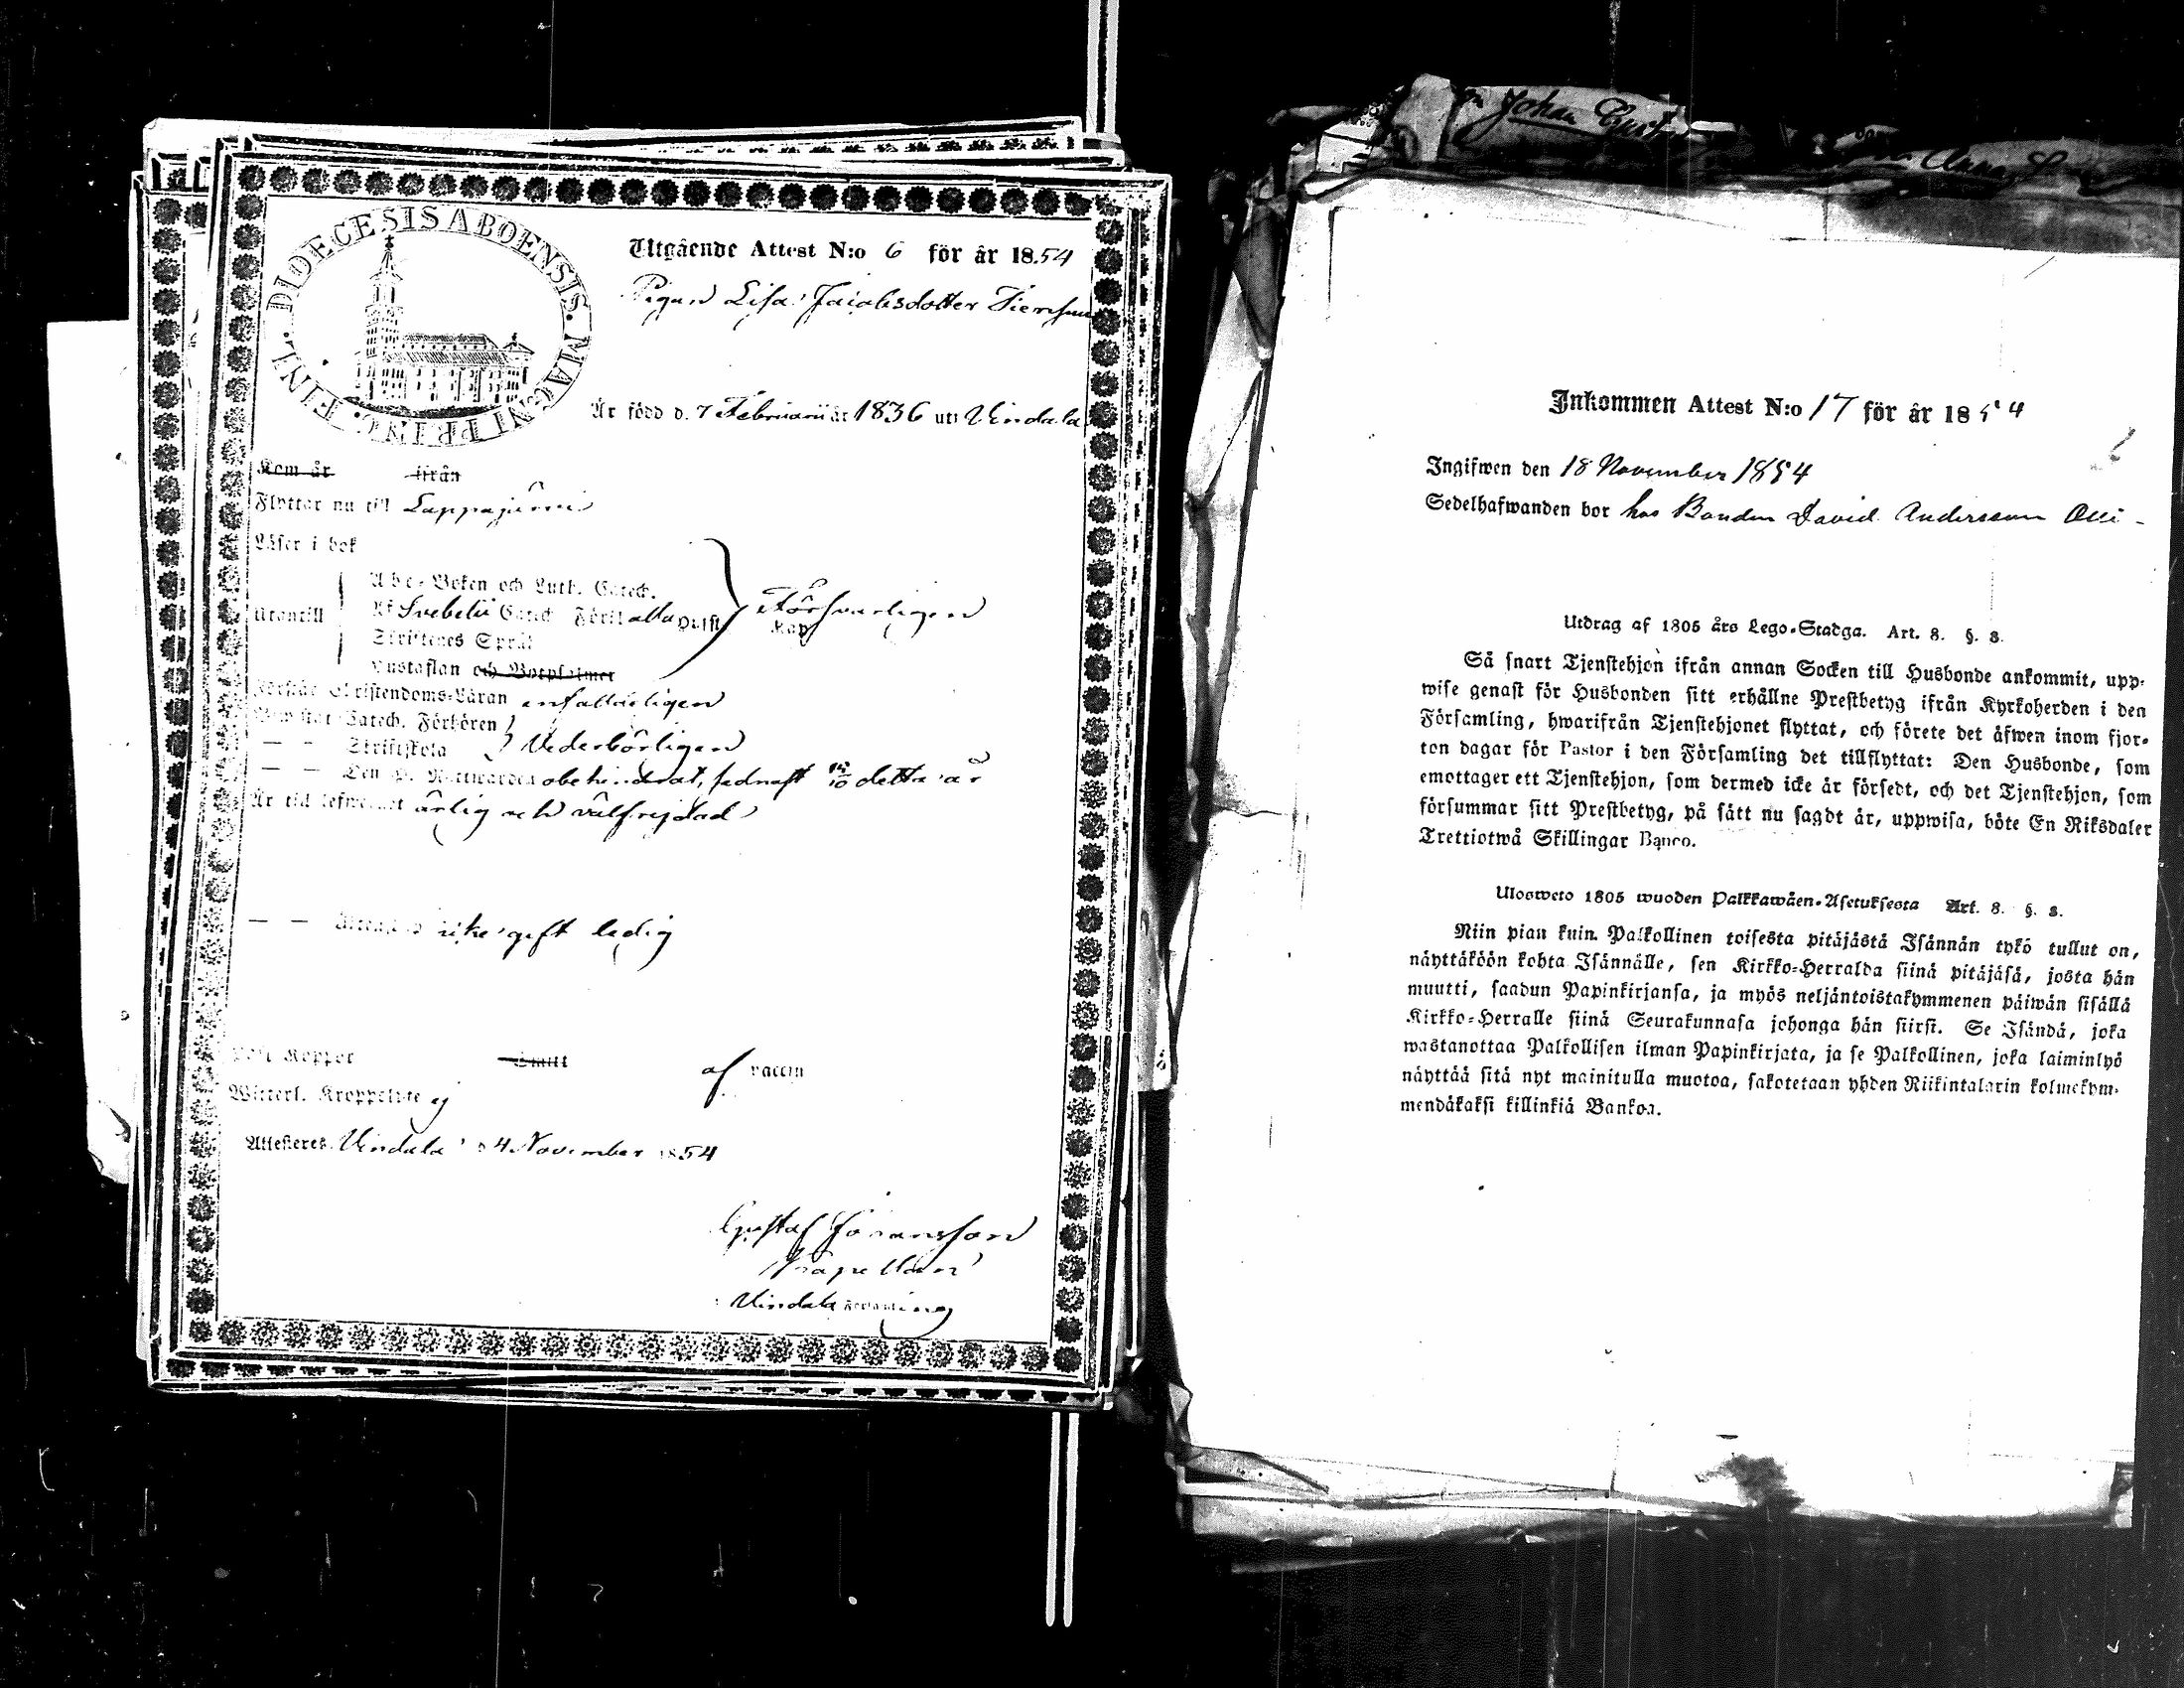 DIOECESIS ABOENSIS. MAGNI PRINC. FINL.
Utgående Attest N:o 6 för år 1854
Pigan Lisa Jacobsdotter
Är född d. 7 Februarii år 1836 uti Vindala
Kom år ifrån
Flyttar nu till Lappajärvi
Läser i bok
Utantill
Abc-Boken och Luth. Catech.
Svebelii Catech. Förkl alla
Försvarligen
Skriftenes Språk
Hustaflan och Botpsalmer
Förstår Christendoms-Läran enfaldeligen
Bewistat Catech. Förhören
— — Skriftskola
Vederbörligen
— — Den H. Nattwarden obehindrat, sednast detta år
Är till lefwernet ärlig och välfrejdad
— — Äktenskap icke gift ledig
Haft Koppor
af vaccin
Witterl. Kroppslyte ej
Attesteras. Vindala d 4 November 1854
Gustaf Joransson
Kapellan
Vindala
Johan
Anna
Inkommen Attest N:o 17 för år 1854
Ingifwen den 18 November 1854
Sedelhafwanden bor hos Bonden David Andersson Olli -
Utdrag af 1805 års Lego-Stadga. Art. 8. §. 8.
Så snart Tjenstehjon ifrån annan Socken till Husbonde ankommit, upp-
wise genast för Husbonden sitt erhållne Prestbetyg ifrån Kyrkoherden i den
Församling, hwarifrån Tjenstehjonet flyttat, och förete det äfwen inom fjor-
ton dagar för Pastor i den Församling det tillflyttat: Den Husbonde, som
emottager ett Tjenstehjon, som dermed icke är försedt, och det Tjenstehjon, som
försummar sitt Prestbetyg, på sätt nu sagdt är, uppwisa, böte En Riksdaler
Trettiotwå Skillingar Banco.
Ulosweto 1805 wuoden Palkkawäen-Asetuksesta Art. 8. §. 8.
Niin pian kuin Palkollinen toisesta pitäjästä Isännän tykö tullut on,
näyttäköön kohta Isännälle, sen Kirkko-Herralda siinä pitäjäsä, josta hän
muutti, saadun Papinkirjansa, ja myös neljäntoistakymmenen päiwän sisällä
Kirkko-Herralle siinä Seurakunnasa johonga hän siirsi. Se Isändä, joka
wastanottaa Palkollisen ilman Papinkirjata, ja se Palkollinen, joka laiminlyö
näyttää sitä nyt mainitulla muotoa, sakotetaan yhden Riikintalarin kolmekym-
mendäkaksi killinkiä Bankoa.